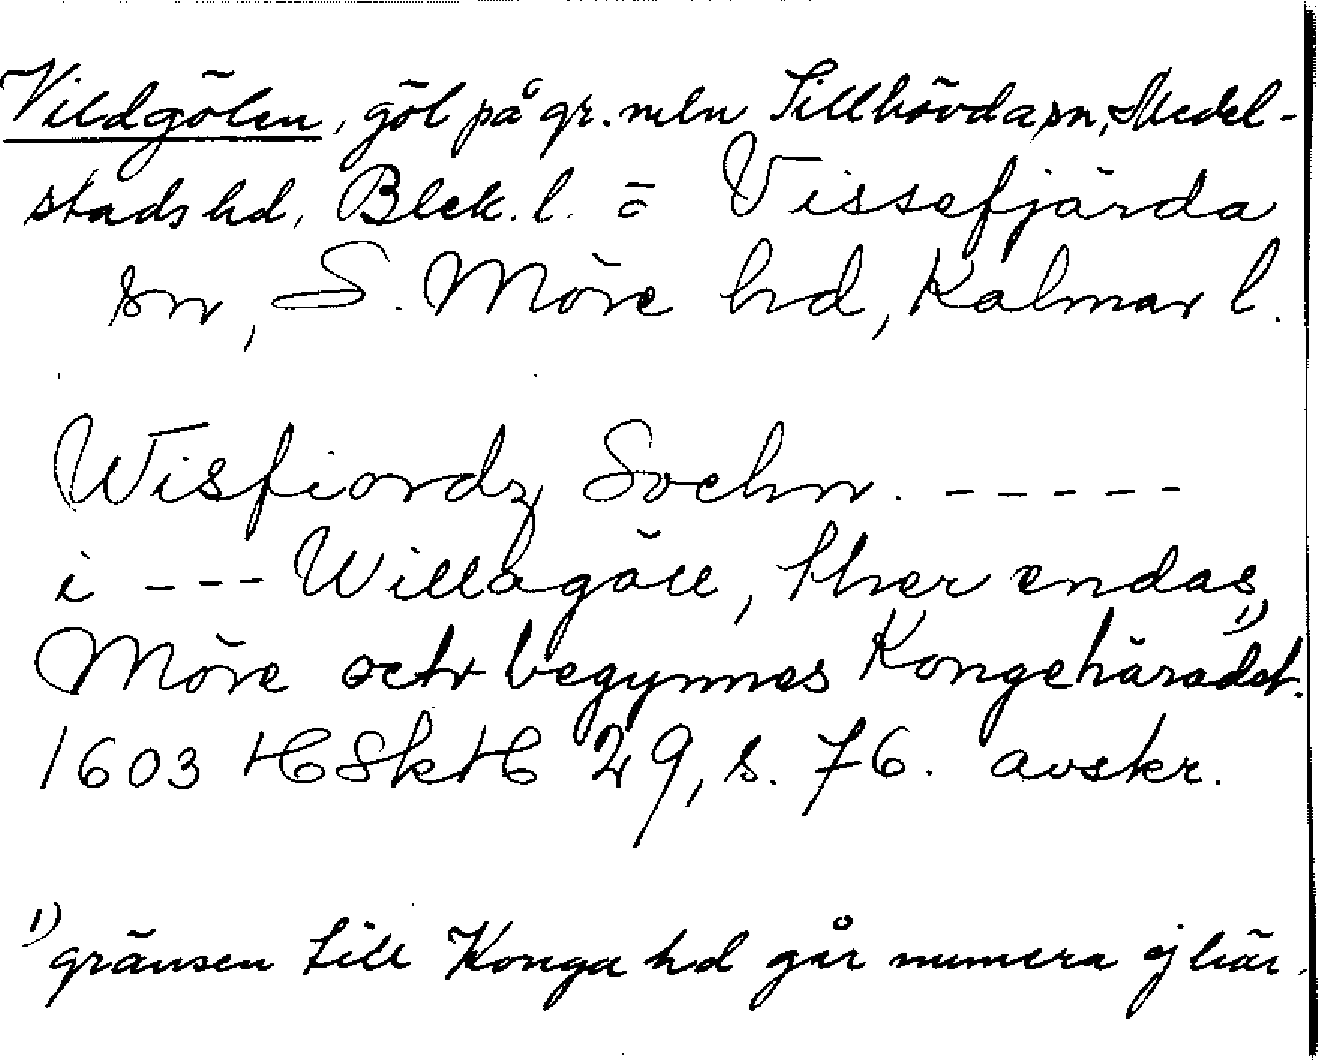 Vildgölen, göl på gr. mln Tillhövda sn, Medel-
stads hd, Blek. l. o̅ Vissefjärda
sn, S. Möre hd, Kalmar l.
Wisfiordz Sochn. - - - - -
i - - - Willagöll, ther endas
Möre och begynnes Kongehäradet.¹⁾
1603 HSkH 29, s. 76. avskr.
¹⁾ gränsen till Konga hd går numera ej här.